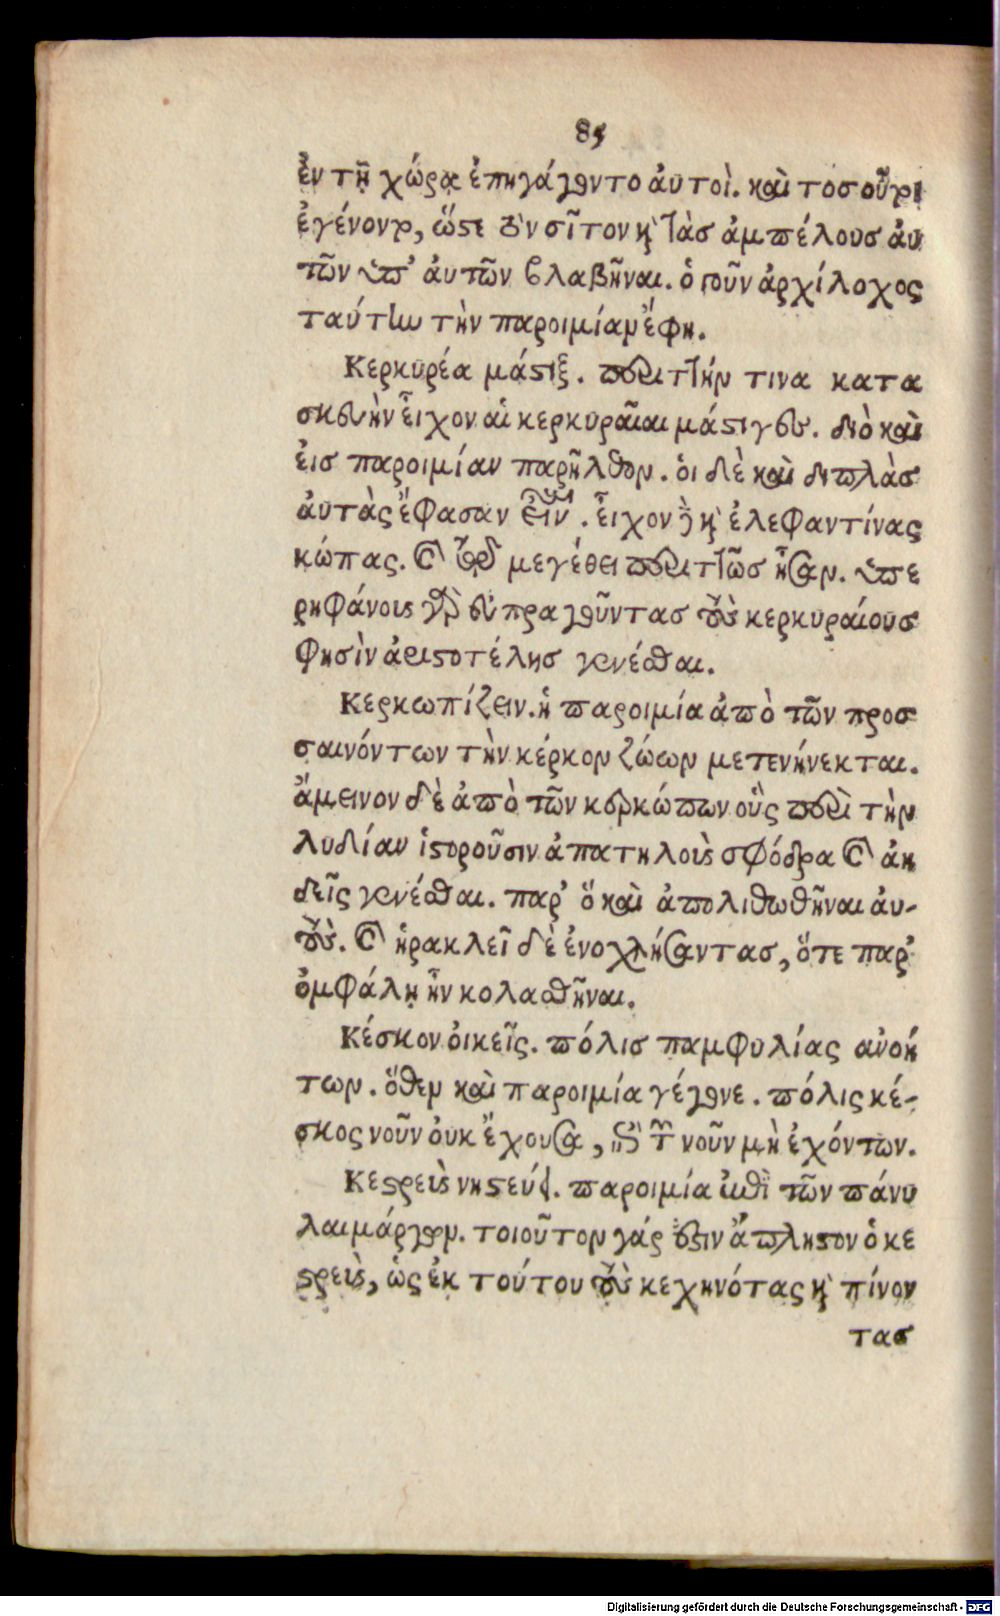 85
ἐν τῇ χώρᾳ ἐπηγάγοντο ἀυτοὶ. καὶ τοσοῦτοι
ἐγένοντο, ὥστε τὸν σῖτον καὶ τὰσ ἀμπέλουσ ἀυ
τῶν ὑπ' ἀυτῶν βλαβῆναι. ὁ γοῦν ἀρχίλοχος
ταύτην τὴν παροιμίαν ἔφη.
Κερκυρέα μάστιξ. περιττήν τινα κατα
σκευὴν εἶχον αἱ κερκυραῖαι μάστιγες. διὸ καὶ
ἐισ παροιμίαν παρῆλθον. ὁι δὲ καὶ διπλὰσ
ἀυτὰς ἔφασαν εἶναι. εἶχον γὰρ καὶ ἐλεφαντίνας
κώπας. καὶ τῷ μεγέθει περιττῶσ ἦσαν. ὑπε
ρηφάνουσ γὰρ ἐυπραγοῦντασ τοὺς κερκυραίουσ
φησὶν ἀριστοτέλησ γενέσθαι.
Κερκωπίζειν. ἡ παροιμία ἀπὸ τῶν προσ
σαινόντων τὴν κέρκον ζώων μετενήνεκται.
ἄμεινον δὲ ἀπὸ τῶν κερκώπων οὓς περὶ τὴν
λυδίαν ἱστοροῦσιν ἀπατηλοὺς σφόδρα καὶ ἀη
δεῖς γενέσθαι. παρ' ὃ καὶ ἀπολιθωθῆναι ἀυ-
τοὺς. καὶ ἡρακλεῖ δὲ ἐνοχλήσαντασ, ὅτε παρ'
ὀμφάλῃ ἦν κολασθῆναι.
Κέσκον ὀικεῖς. πόλισ παμφυλίας ανοή
των. ὅθεν καὶ παροιμία γέγονε. πόλις κέ-
σκος νοῦν ὀυκ ἔχουσα, ἐπὶ τῶν νοῦν μὴ ἐχόντων.
Κεστρεὺς νηστεύει. παροιμία ἐπὶ τῶν πάνυ
λαιμάργων. τοιοῦτον γάρ ἐστιν ἄπληστον ὁ κε
στρεὺς, ὡς ἐκ τούτου τοὺς κεχηνότας καὶ πίνον
τασ
Digitalisierung gefördert durch die Deutsche Forschungsgemeinschaft - DFG